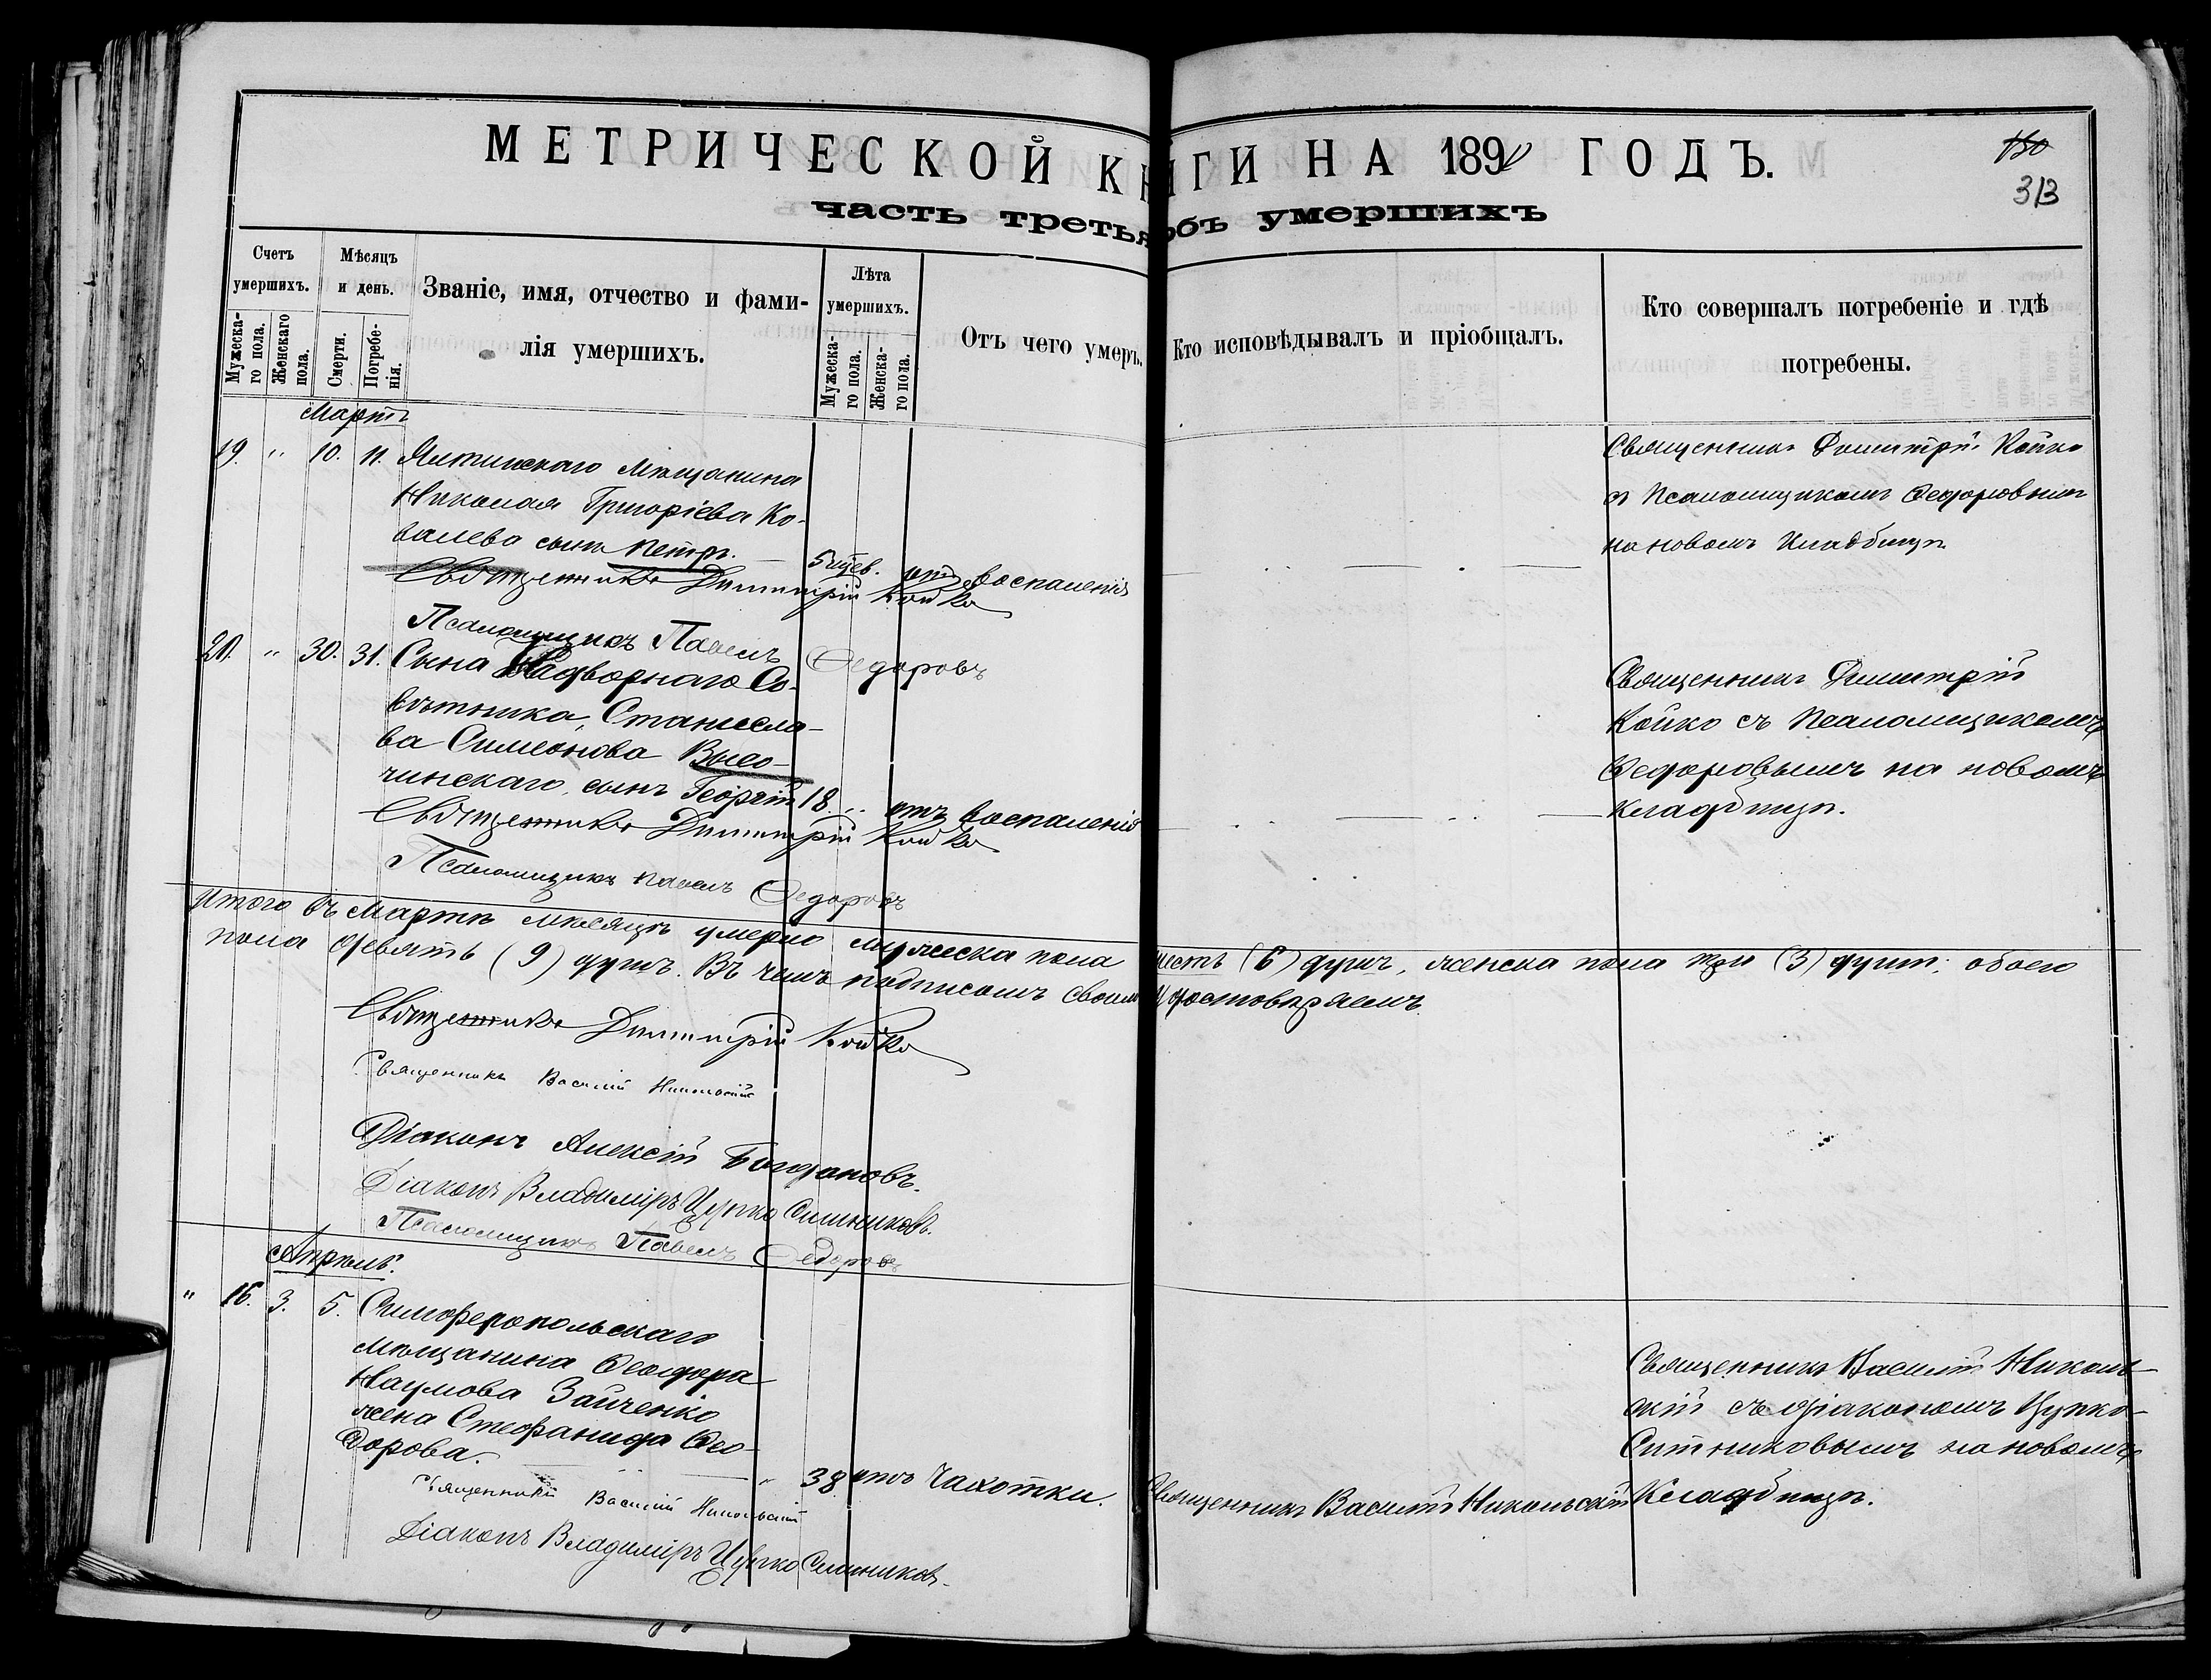 МЕТРИЧЕСКОЙ КНИГИ НА 189 ГОДЪ.
150
313
часть третья объ умершихъ
Счетъ умершихъ.
Мужеска-го пола.
Женскаго пола.
Мѣсяцъ и день.
Смерти.
Погребе-нія.
Званіе, имя, отчество и фами-
лія умершихъ.
Лѣта умершихъ.
Мужеска-го пола.
Женска-го пола.
Отъ чего умеръ.
Кто исповѣдывалъ и пріобщалъ.
Кто совершалъ погребеніе и гдѣ
погребены.
Мартъ
19. " 10. 11. Ялтинскаго Мѣщанина
Николая Григоріева Ко-
валева сынъ Петръ. 5 отъ воспаленія
Священникъ Димитрій Койко
съ Псаломщикомъ Федоровымъ
на новомъ Кладбищѣ
Священникъ Димитрій Койко
Псаломщикъ Павелъ Федоровъ
20. " 30. 31. Сына Надворнаго Со-
вѣтника, Станисла-
ва Симеонова Высо-
чинскаго, сынъ Георгій 18 " отъ воспаленія
Священникъ Димитрій
Койко съ Псаломщикомъ
Федоровымъ на новомъ
кладбищѣ.
Священникъ Димитрій Койко
Псаломщикъ Павелъ Федоровъ
Итого въ Мартѣ мѣсяцѣ умерло мужеска пола шесть (6) душъ, женска пола три (3) души; обоего
пола девять (9) душъ. Въ чемъ подписомъ своимъ удостовѣряемъ.
Священникъ Димитрій Койко
Священникъ Василій Никольскій
Діаконъ Алексій Богдановъ.
Діаконъ Владиміръ Цупко Ситниковъ.
Псаломщикъ Павелъ Федоровъ
Апрѣль.
" 16. 3. 5. Симферопольскаго
мѣщанина Феодора
Наумова Зайченко
жена Стефанида Фео-
дорова. " 38 отъ чахотки. Священникъ Василій Никольскій
Священникъ Василій Николь-
скій съ діакономъ Цупко-
Ситниковымъ на новомъ
Кладбищѣ.
Священникъ Василій Никольскій
Діаконъ Владиміръ Цупко Ситниковъ.